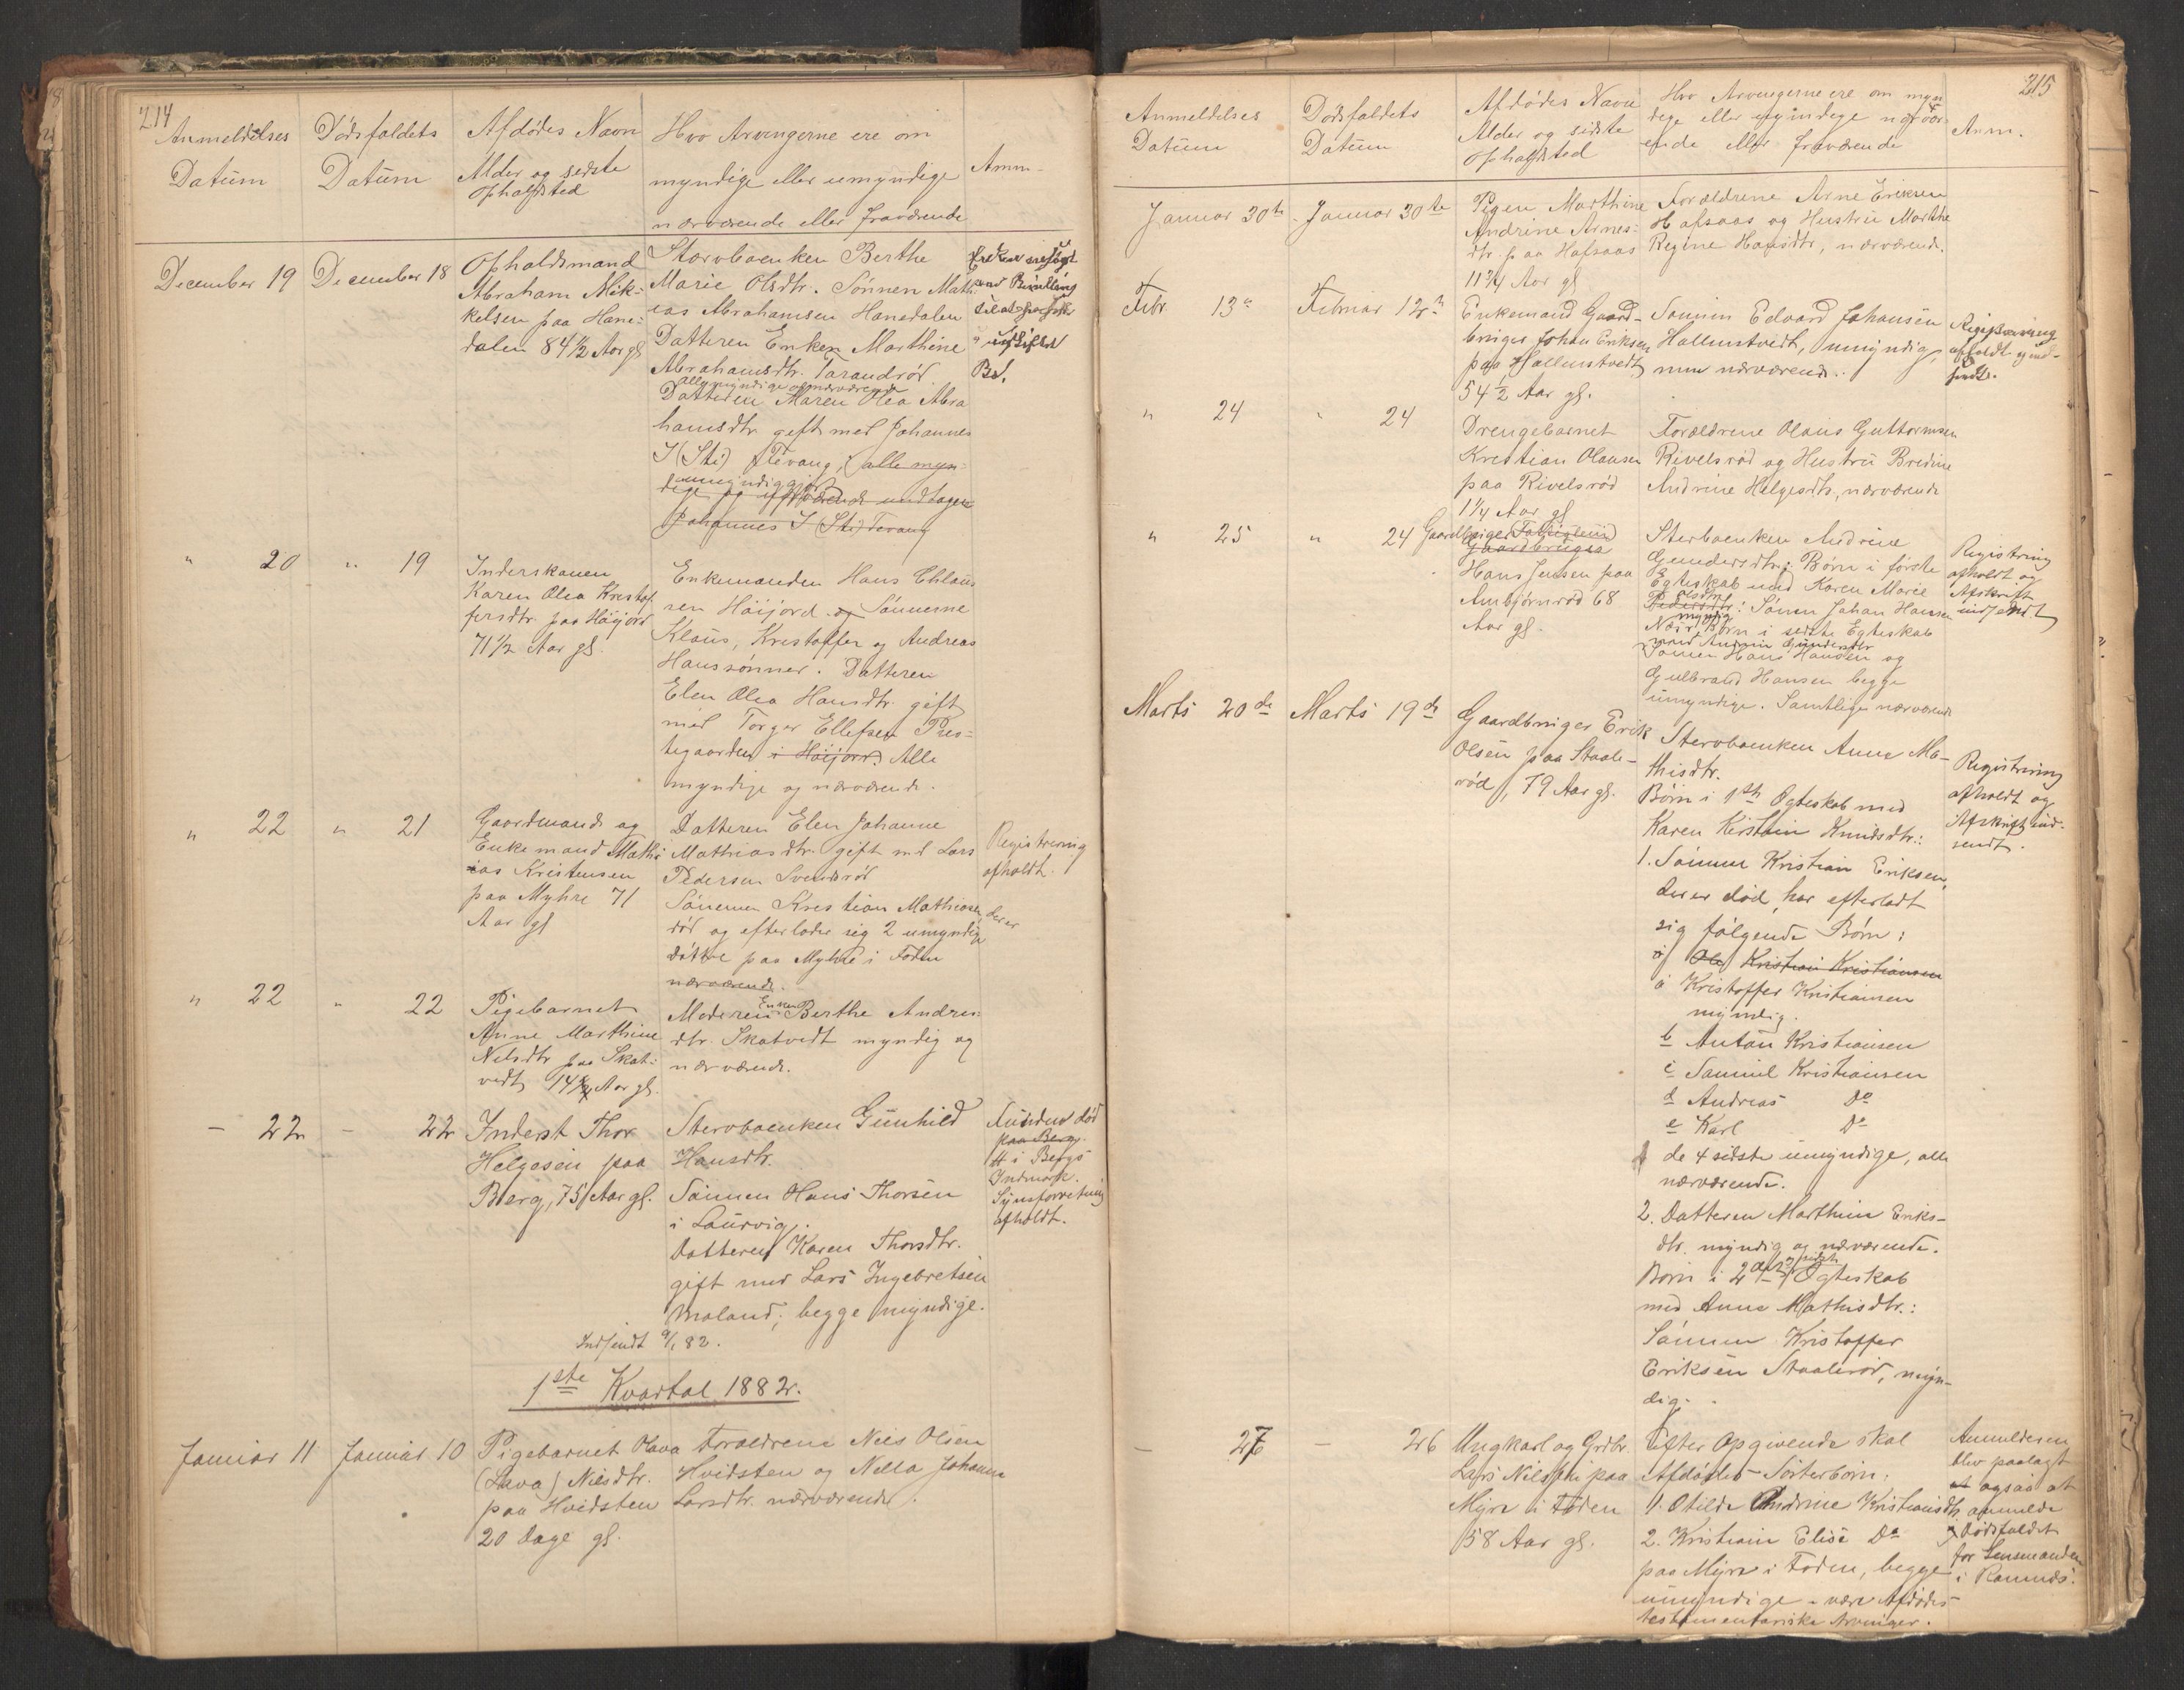 214
Anmeldelses
Datum
Dödsfaldets
Datum
Afdödes Navn
Alder og sidste
Opholdsted
Hvo Arvingerne ere om
myndige eller umyndige
nærværende eller fraværende
Anm.
December 19
December 18
Opholdsmand
Abraham Mik-
kelsen paa Hane-
dalen 84 1/2 Aar gl
Stervboenken Berthe
Marie Olsdtr. Sönnen Math-
ias Abrahamsen Hanedalen
Datteren Enken Marthine
Abrahamsdtr. Tarandröd
alle myndige og nærværende
Datteren Maren Olea Abra
hamsdtr. gift med Johannes
I (Sti) Tevang; alle myn-
umyndige
dige og nærværende undtagen
Johannes I (Sti) Tevang
" 20
" 19
Inderskonen
Karen Olea Kristof
fersdtr. paa Höijord
71 1/2 Aar gl.
Enkemanden Hans Chlaus
sen Höijord og Sönnerne
Klaus, Kristoffer og Andreas
Hanssönner. Datteren
Elen Olea Hansdtr. gift
med Torger Ellefsen Pres-
tegaarden i Höijord. Alle
myndige og nærværende.
" 22
" 21
Gaardmand og
Enkemand Mathi
ias Kristensen
paa Myhre 71
Aar gl
Datteren Elen Johanne
Mathiasdtr. gift md Lars
Pedersen Svendsröd
Sönnen Kristian Mathiasen, der er
död og efterlader sig 2 umyndige
döttre paa Myhre i Foden
nærværende.
Registrering
afholdt.
" 22
" 22
Pigebarnet
Anne Marthine
Nilsdtr paa Skat-
vedt 14 Aar gl.
Moderen Enken Berthe Andrea-
dtr. Skatvedt myndig og
nærværende.
- 22
- 22
Inderst Thor
Helgesen paa
Berg, 75 Aar gl.
Stervboenken Gunhild
Hansdtr.
Sönnen Hans Thorsen
i Laurvig.
Datteren Karen Thorsdtr.
gift med Lars Ingebretsen
Moland; begge myndige.
Funden död
paa Berg
i Bergs
Indmark.
Synsforretning
afholdt.
Indsendt 9/1 82.
1ste Kvartal 1882.
Januar 11
Januar 10
Pigebarnet Olava
(Lava) Nilsdtr.
paa Hvidsten
20 Dage gl.
Forældrene Nils Olsen
Hvidsten og Nella Johanne
Larsdtr. nærværende.
215
Anmeldelses
Datum
Dödsfaldets
Datum
Afdödes Navn
Alder og sidste
Opholdsted
Hvo Arvingerne ere om myn
dige eller umyndige nærvær-
ende eller fraværende
Anm.
Januar 30te
Januar 30te
Pigen Marthine
Andrine Arnes-
dtr. paa Hafsaas
11 3/4 Aar gl
Forældrene Arne Eriksen
Hafsaas og Hustru Marthe
Regine Hansdtr, nærværende.
Febr. 13
Februar 12
Enkemand Gaard-
bruger Johan Eriksen
paa Hallenstvedt
54 1/2 Aar gl.
Sönnen Edvard Johansen
Hallenstvedt, umyndig,
men nærværende.
Registrering
afholdt og ind-
sendt.
" 24
" 24
Drengebarnet
Kristian Olausen
paa Rivelsröd
1 1/4 Aar gl
Forældrene Olaus Guttormsen
Rivelsröd og Hustru Bredine
Andrine Helgesdtr, nærværende
" 25
" 24
Gaardbruger
Gaardbruger
Hans Jensen paa
Ambjörnröd 68
Aar gl.
Sterboenken Andrine
Gundersdtr.; Börn i förste
Egteskab med Karen Marie
Olsdtr
Pedersdtr: Sönnen Johan Hansen
myndig
Nær. Börn i sidste Egteskab
med Andrine Gundersdtr
Sönnen Hans Hansen og
Gulbrand Hansen begge
umyndige. Samtlige nærværende
Registrering
afholdt og
Afskrift
indsendt
Marts 20de
Marts 19de
Gaardbruger Erik
Olsen paa Staale-
röd, 79 Aar gl.
Stervboenken Anne Ma-
thisdtr.
Börn i 1ste Ægteskab med
Karen Kirstine Knudsdtr.:
1. Sönnen Kristian Eriksen,
der er död, har efterladt
sig fölgende Börn:
a Ole Kristian Kristiansen
a Kristoffer Kristiansen
myndig.
b Anton Kristiansen
c Samuel Kristiansen
d Andreas Do
e Karl Do
de 4 sidste umyndige, alle
nærværende.
2. Datteren Marthine Eriks-
dtr. myndig og nærværende.
Börn i 2det og sidste Ægteskab
med Anne Mathisdtr.:
Sönnen Kristoffer
Eriksen Staaleröd, myn-
dig.
Registrering
afholdt og
Afskrift ind-
sendt.
- 27
- 26
Ungkarl og Grdbr.
Lars Nilsen paa
Myre i Foden
58 Aar gl.
Efter Opgivende skal
Afdödes Sösterbörn:
1. Otilde Andrine Kristiansdtr.
2. Kristiane Elise Do
paa Myre i Foden, begge
umyndige - være Afdödes
testamentariske Arvinger.
Anmelderen
blev paalagt
at ogsaa at
anmelde
Dödsfaldet
for Lensmanden
i Ramnæs.